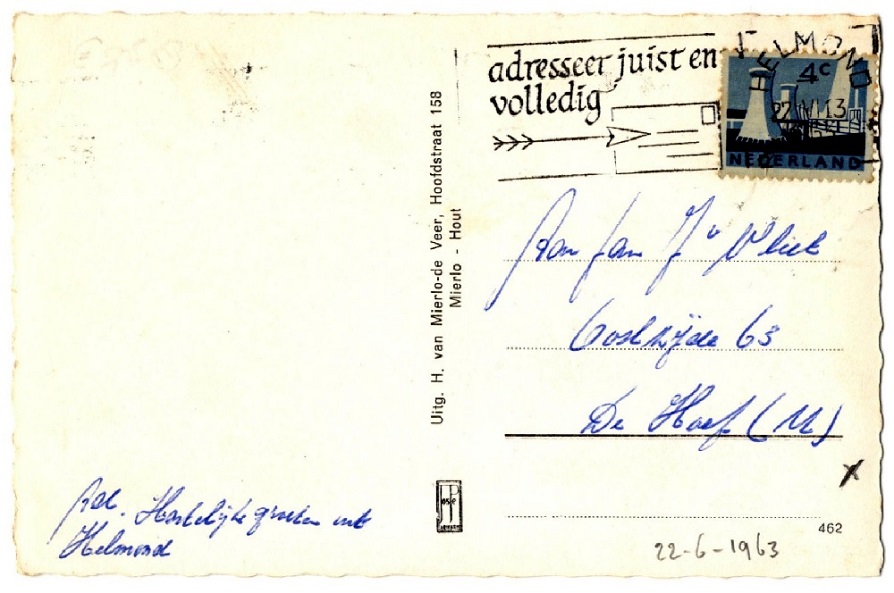 adresseer juist en
volledig
HELMOND
4c
22 VI 13
NEDERLAND
Uitg. H. van Mierlo-de Veer, Hoofdstraat 158
Mierlo - Hout
Aan Jan
Oostzijde 63
De Hoef (U)
Hartelijke groeten uit
Helmond
JP
462
22-6-1963